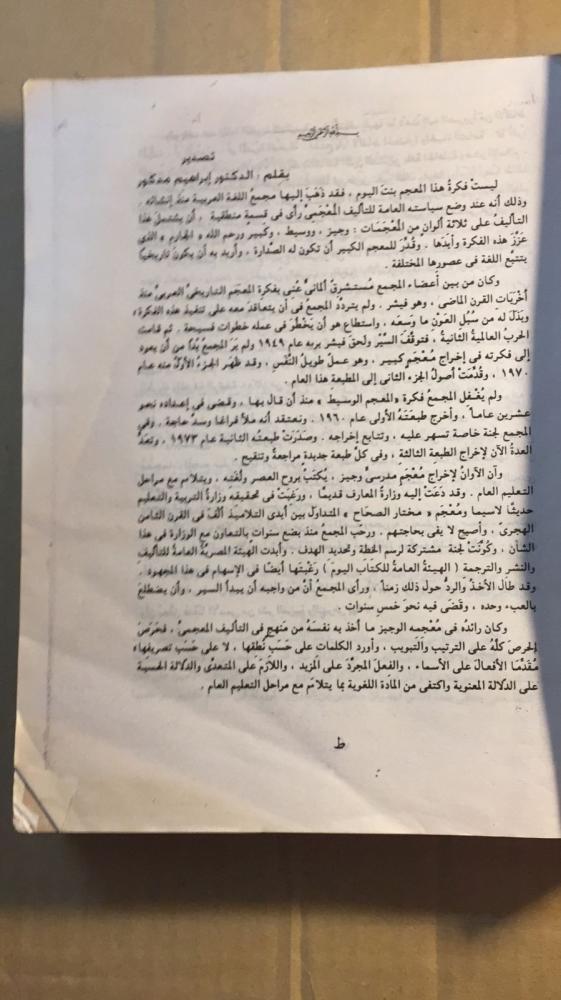 بسم الله الرحمن الرحيم
تصدير
بقلم : الدكتور إبراهيم مدكور
ليستْ فكرةُ هذا المعجم بنتَ اليوم ، فقد ذهَبَ إليها مجمعُ اللغة العربية منذ إنشائه .
وذلك أنه عند وضع سياسته العامة للتأليف المعْجَميّ رأى فى قسمةٍ منطقية ، أن يشتملَ هذا
التأليفُ على ثلاثة ألوان من المعْجَمات : وجيز ، ووسيط ، وكبير ورحم الله « الجارم » الذى
عَزَّزَ هذه الفكرةَ وأيدَها . وقُدِّرَ للمعجم الكبير أن تكون له الصَّدارة ، وأريد به أن يكونَ تاريخيًا
يتتبَّع اللغة فى عصورها المختلفة .
وكان من بين أعضاء المجمع مُستشرِقٌ ألمانىٌّ عُنِى بفكرة المعجَم التاريخىِّ العربى منذ
أخْرَيات القرن الماضى ، وهو فيشر . ولم يتردَّد المجمعُ فى أن يتعاقدَ معه على تنفيذ هذه الفكرة ،
وبَذَلَ له من سُبُلِ العَوْنِ ما وسعَه ، واستطاع هو أن يَخْطُوَ فى عمله خطوات فسيحة . ثم قامت
الحربُ العالميةُ الثانيةُ ، فتوقَّفَ السَّيْرُ ولحقَ فيشر بربه عام ١٩٤٩ ولم يرَ المجمعُ بُدًّا من أن يعود
إلى فكرته فى إخراج مُعْجَمٍ كبير ، وهو عملٌ طويلُ النَّفَس ، وقد ظهَر الجزءُ الأولُ منه عام
١٩٧٠ ، وقُدِّمَتْ أصولُ الجزءِ الثانى إلى المطبعة هذا العام .
ولم يُغْفِل المجمعُ فكرةَ « المعجم الوسيط » منذ أن قال بها ، وقضى فى إعداده نحو
عشرين عاماً ، وأخرج طبعَتَهُ الأولى عام ١٩٦٠ . ونعتقد أنه ملأ فراغا وسدَّ حاجة . وفى
المجمع لجنة خاصة تسهر عليه ، وتتابع إخراجه . وصدَرَتْ طبعتُه الثانية عام ١٩٧٣ ، ونعدُّ
العدةَ الآن لإخراج الطبعة الثالثة ، وفى كلِّ طبعة جديدةٍ مراجعةٌ وتنقيح .
وآن الأوانُ لإخراج مُعْجَمٍ مدرسىٍّ وجيز ، يُكتَبُ بروح العصر ولُغَتِه ، ويتلاءم مع مراحل
التعليم العام . وقد دعَتْ إليه وزارةُ المعارف قديمًا ، ورَغِبَتْ فى تحقيقه وزارةُ التربية والتعليم
حديثًا لاسيما ومُعْجَم « مختار الصحَاح » المتداوَل بين أيدى التلاميذ ألِّفَ فى القرن الثامن
الهجرىّ ، وأصبح لا يفى بحاجتهم . ورحَّبَ المجمعُ منذ بضع سنوات بالتعاون مع الوزارة فى هذا
الشأن ، وكُوِّنَتْ لجنة مشتركة لرسم الخطة وتحديد الهدف . وأبدت الهيئةُ المصريةُ العامةُ للتأليف
والنشر والترجمة ( الهيئةُ العامةُ للكتاب اليوم ) رَغْبَتَها أيضًا فى الإسهام فى هذا المجهود .
وقد طالَ الأخذُ والردُّ حولَ ذلك زمناً ، ورأى المجمعُ أنَّ من واجبه أن يبدأ السير ، وأن يضطلعَ
بالعبء وحده ، وقَضَى فيه نحوَ خمسِ سنوات .
وكان رائدُه فى مُعْجمه الوجيز ما أخذ به نفسَهُ من مَنهجٍ فى التأليف المعجمىّ ، فحَرَصَ
الحرصَ كلَّه على الترتيب والتبويب ، وأورد الكلماتِ على حَسَبِ نُطْقِها ، لا على حَسَبِ تصريفِها ،
مُقدِّمًا الأفعالَ على الأسماء ، والفعلَ المجرَّدَ على المزيد ، واللازمَ على المتعدِّى والدلالةَ الحسيةَ
على الدلالة المعنوية واكتفى من المادة اللغوية بما يتلاءَم مع مراحل التعليم العام .
ط